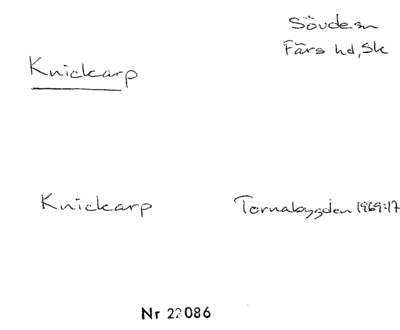 Sövde sn
Färs hd, Sk
Knickarp
Knickarp
Tornabygden 1969:17
Nr 22086